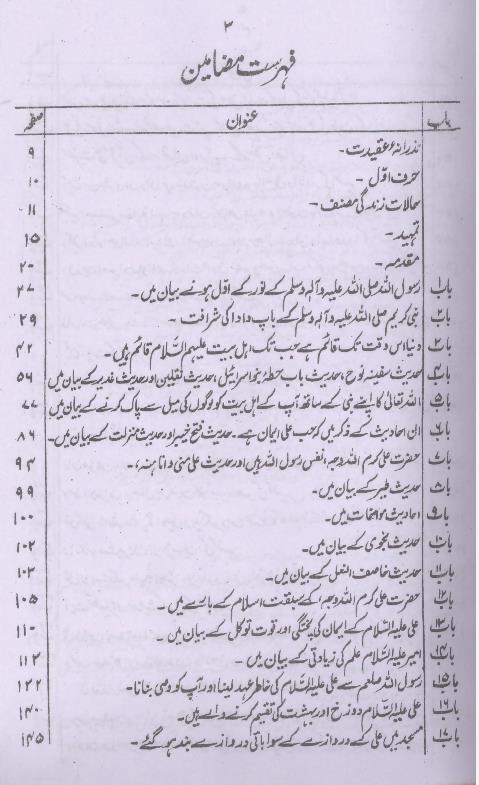 ۳
فہرست مضامین
باب عنوان صفحہ
نذرانۂ عقیدت۔ ۹
حرف اوّل۔ ۱۰
حالات زندگی مصنف۔ ۱۱
تمہید۔ ۱۵
مقدمہ۔ ۲۰
باب۱ رسول اللہ صلی اللہ علیہ وآلہ وسلم کے نور کے اوّل ہونے بیان میں۔ ۲۷
باب۲ نبی کریم صلی اللہ علیہ وآلہ وسلم کے باپ دادا کی شرافت۔ ۲۹
باب۳ دنیا اس وقت تک قائم ہے جب تک اہل بیت علیہم السّلام قائم ہیں۔ ۴۲
باب۴ حدیث سفینہ نوح، حدیث باب حطہ بنو اسرائیل، حدیث ثقلین اور حدیث غدیر کے بیان میں ۵۶
باب۵ اللہ تعالیٰ کا اپنے نبی کے ساتھ آپ کے اہل بیت کو لوگوں کی میل سے پاک کرنے کے بیان میں ۷۷
باب۶ ان احادیث کے ذکر میں کہ حب علی ایمان ہے۔ حدیث فتح خیبر اور حدیث منزلت کے بیان میں۔ ۸۶
باب۷ حضرت علی کرم اللہ وجہہ، نفس رسول اللہ ہیں اور حدیث علی منی وانا منہ،۔ ۹۴
باب۸ حدیث طیر کے بیان میں۔ ۹۹
باب۹ احادیث مواخات میں۔ ۱۰۰
باب۱۰ حدیث نجویٰ کے بیان میں۔ ۱۰۲
باب۱۱ حدیث خاصف النعل کے بیان میں۔ ۱۰۳
باب۱۲ حضرت علی کرم اللہ وجہہ، کے سبقت اسلام کے بارے میں۔ ۱۰۵
باب۱۳ علی علیہ السّلام کے ایمان کی پختگی اور قوت توکل کے بیان میں۔ ۱۱۰
باب۱۴ امیر علیہ السّلام علم کی زیادتی کے بیان میں۔ ۱۱۲
باب۱۵ رسول اللہ صلعم سے علی علیہ السّلام کی خاطر عہد لینا اور آپ کو وصی بنانا۔ ۱۲۲
باب۱۶ علی علیہ السّلام دوزخ اور بہشت کی تقسیم کرنے والے ہیں۔ ۱۴۰
باب۱۷ مسجد میں علی کے دروازے کے سوا باقی دروازے بند ہو گئے۔ ۱۴۵